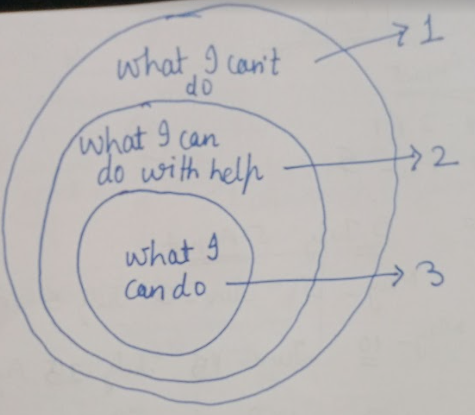 what I can't
do
1
what I can
do with help
2
what I
can do
3